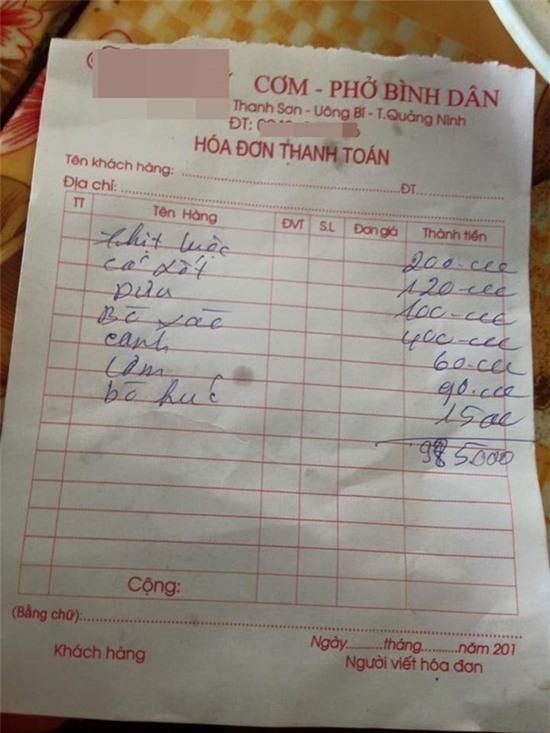 CƠM - PHỞ BÌNH DÂN
Thanh Sơn - Uông Bí - T.Quảng Ninh
ĐT:
HÓA ĐƠN THANH TOÁN
Tên khách hàng: ĐT
Địa chỉ:
TT Tên Hàng ĐVT S.L Đơn giá Thành tiền
thịt luộc 200.000
cá sốt 120.000
Dưa 100.000
Bò xào 400.000
canh 60.000
cơm 90.000
bò húc 15000
985.000
Cộng:
(Bằng chữ)
Ngày tháng năm 201
Khách hàng Người viết hóa đơn